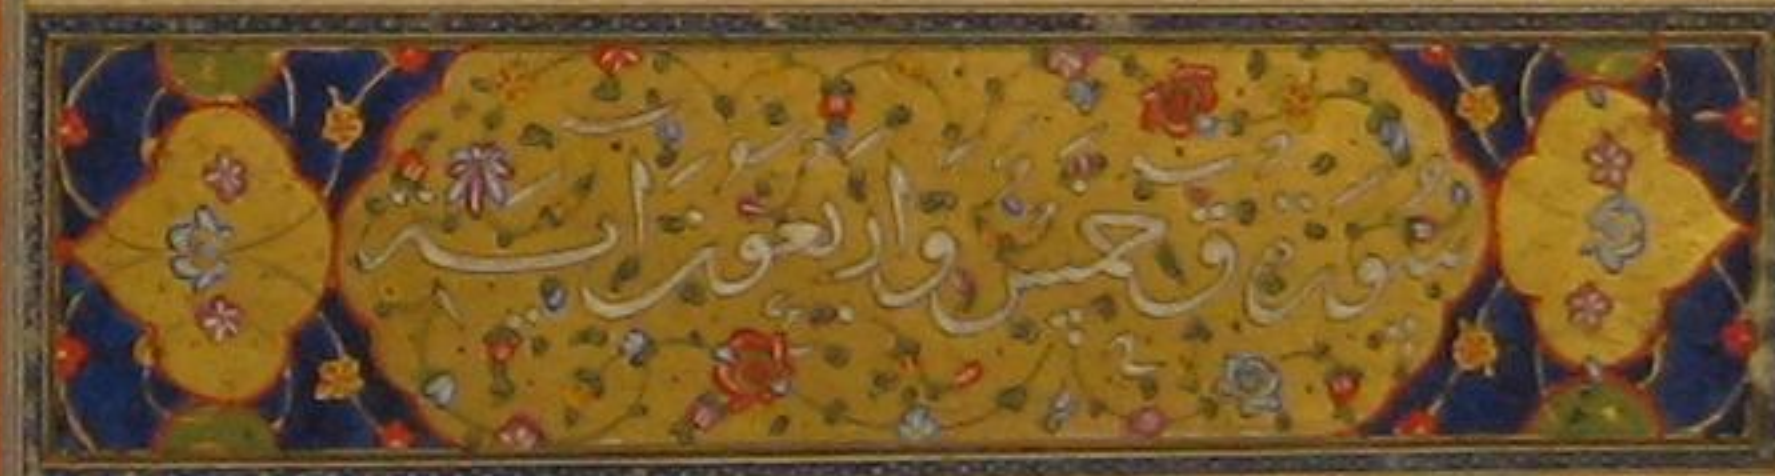 سُورَةُ ق خَمْسٌ وَارْبَعُونَ اٰيَة